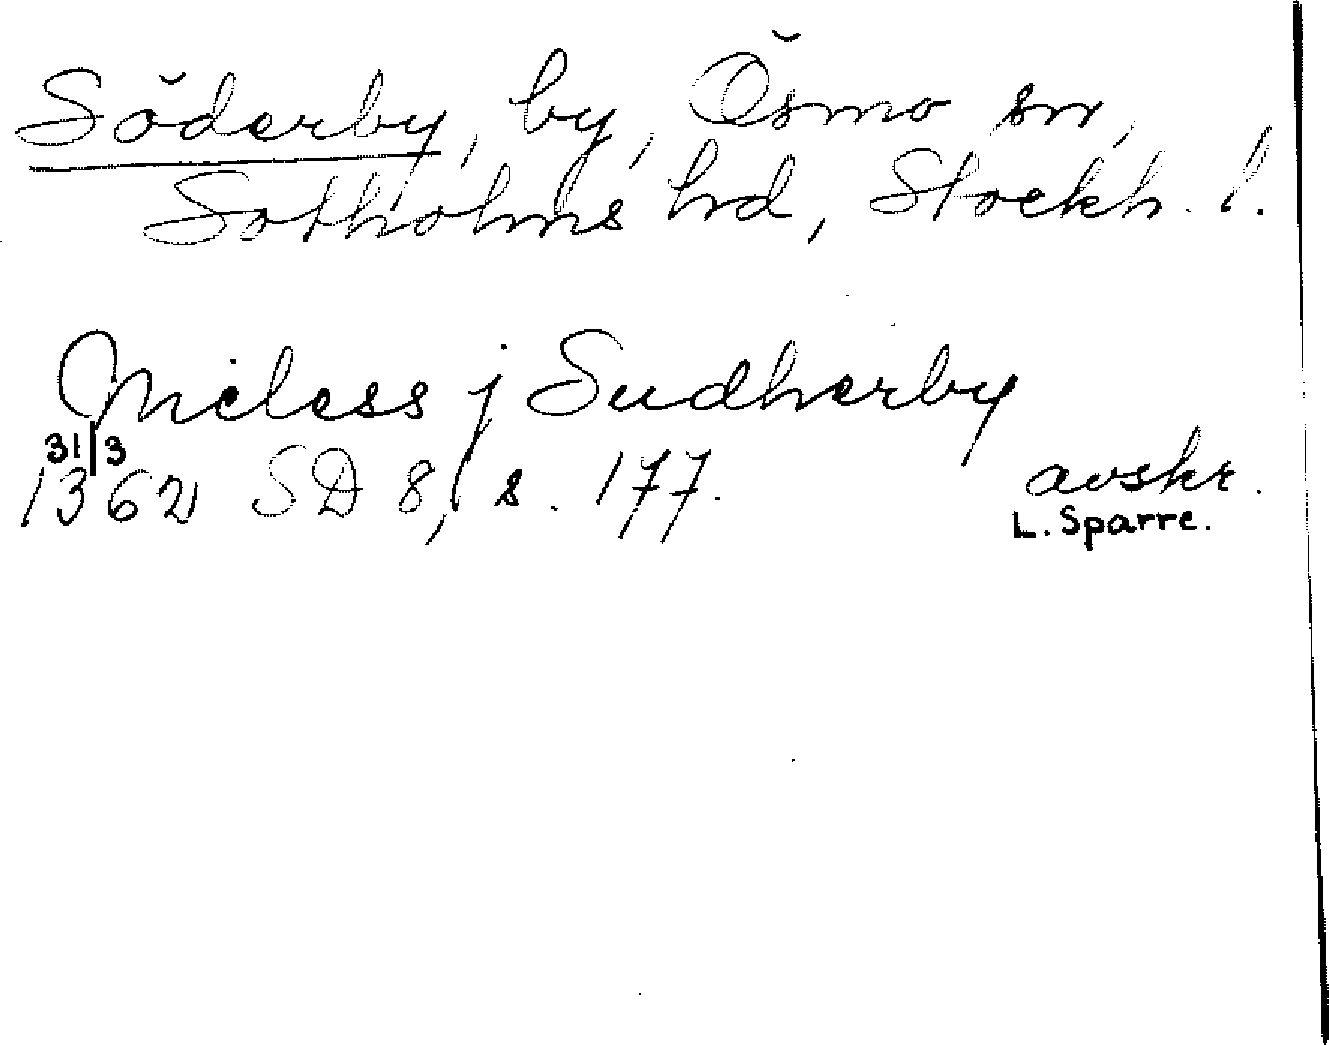 Söderby, by, Ösmo sn,
Sotholms hd, Stockh. l.
Jnieless j Sudherby
31/3
1362 SD 8, s. 177.
avskr.
L. Sparre.